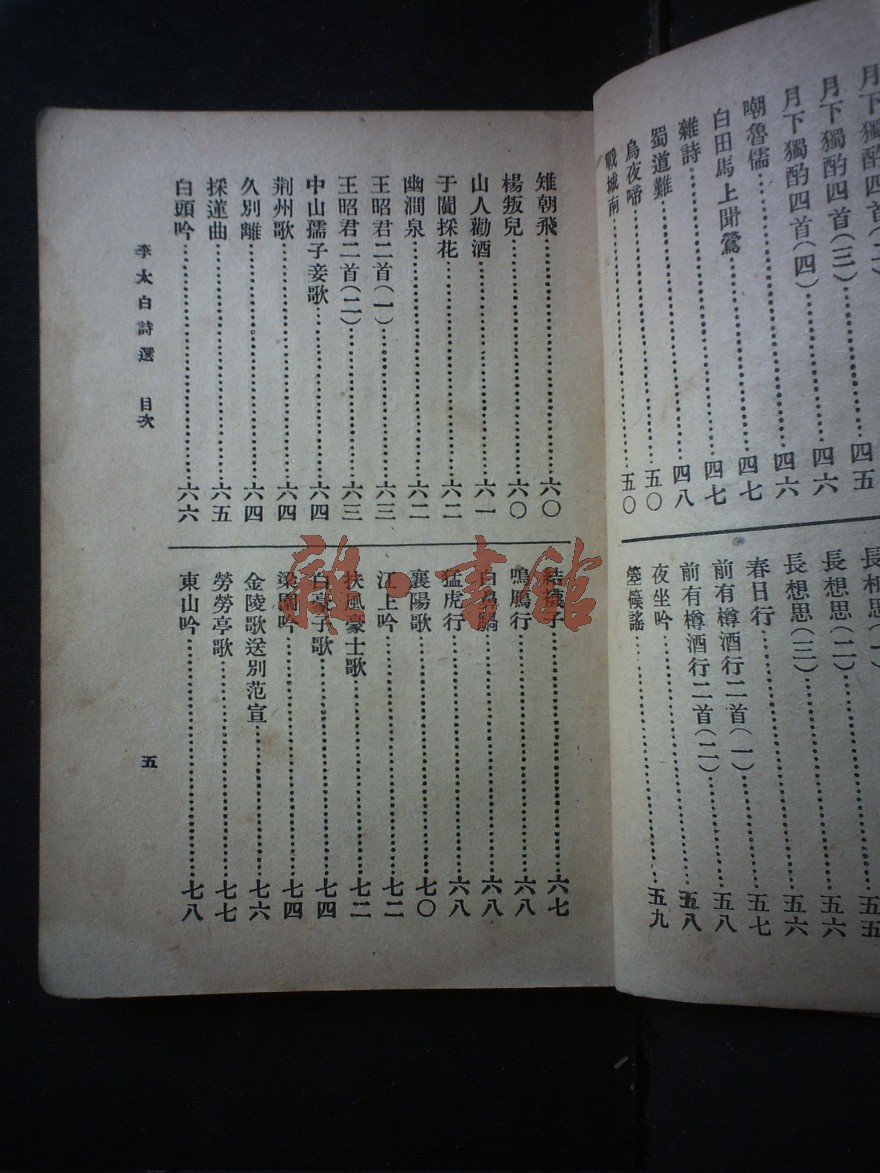 月下獨酌四首(三)……四五
月下獨酌四首(四)……四六
嘲魯儒……四六
白田馬上聞鶯……四七
雜詩……四七
蜀道難……四八
烏夜啼……五〇
戰城南……五〇
長想思(一)……五五
長想思(二)……五六
長想思(三)……五六
春日行……五七
前有樽酒行二首(一)……五八
前有樽酒行二首(二)……五八
夜坐吟……五九
箜篌謠
雉朝飛……六〇
楊叛兒……六〇
山人勸酒……六一
于闐採花……六二
幽澗泉……六二
王昭君二首(一)……六三
王昭君二首(二)……六三
中山孺子妾歌……六四
荆州歌……六四
久別離……六四
採蓮曲……六五
白頭吟……六六
結襪子……六七
鳴鴈行……六八
白鼻騧……六八
猛虎行……六八
襄陽歌……七〇
江上吟……七二
扶風豪士歌……七二
白毫子歌……七四
梁園吟……七四
金陵歌送別范宣……七六
勞勞亭歌……七七
東山吟……七八
李太白詩選 目次
五
雜·書館